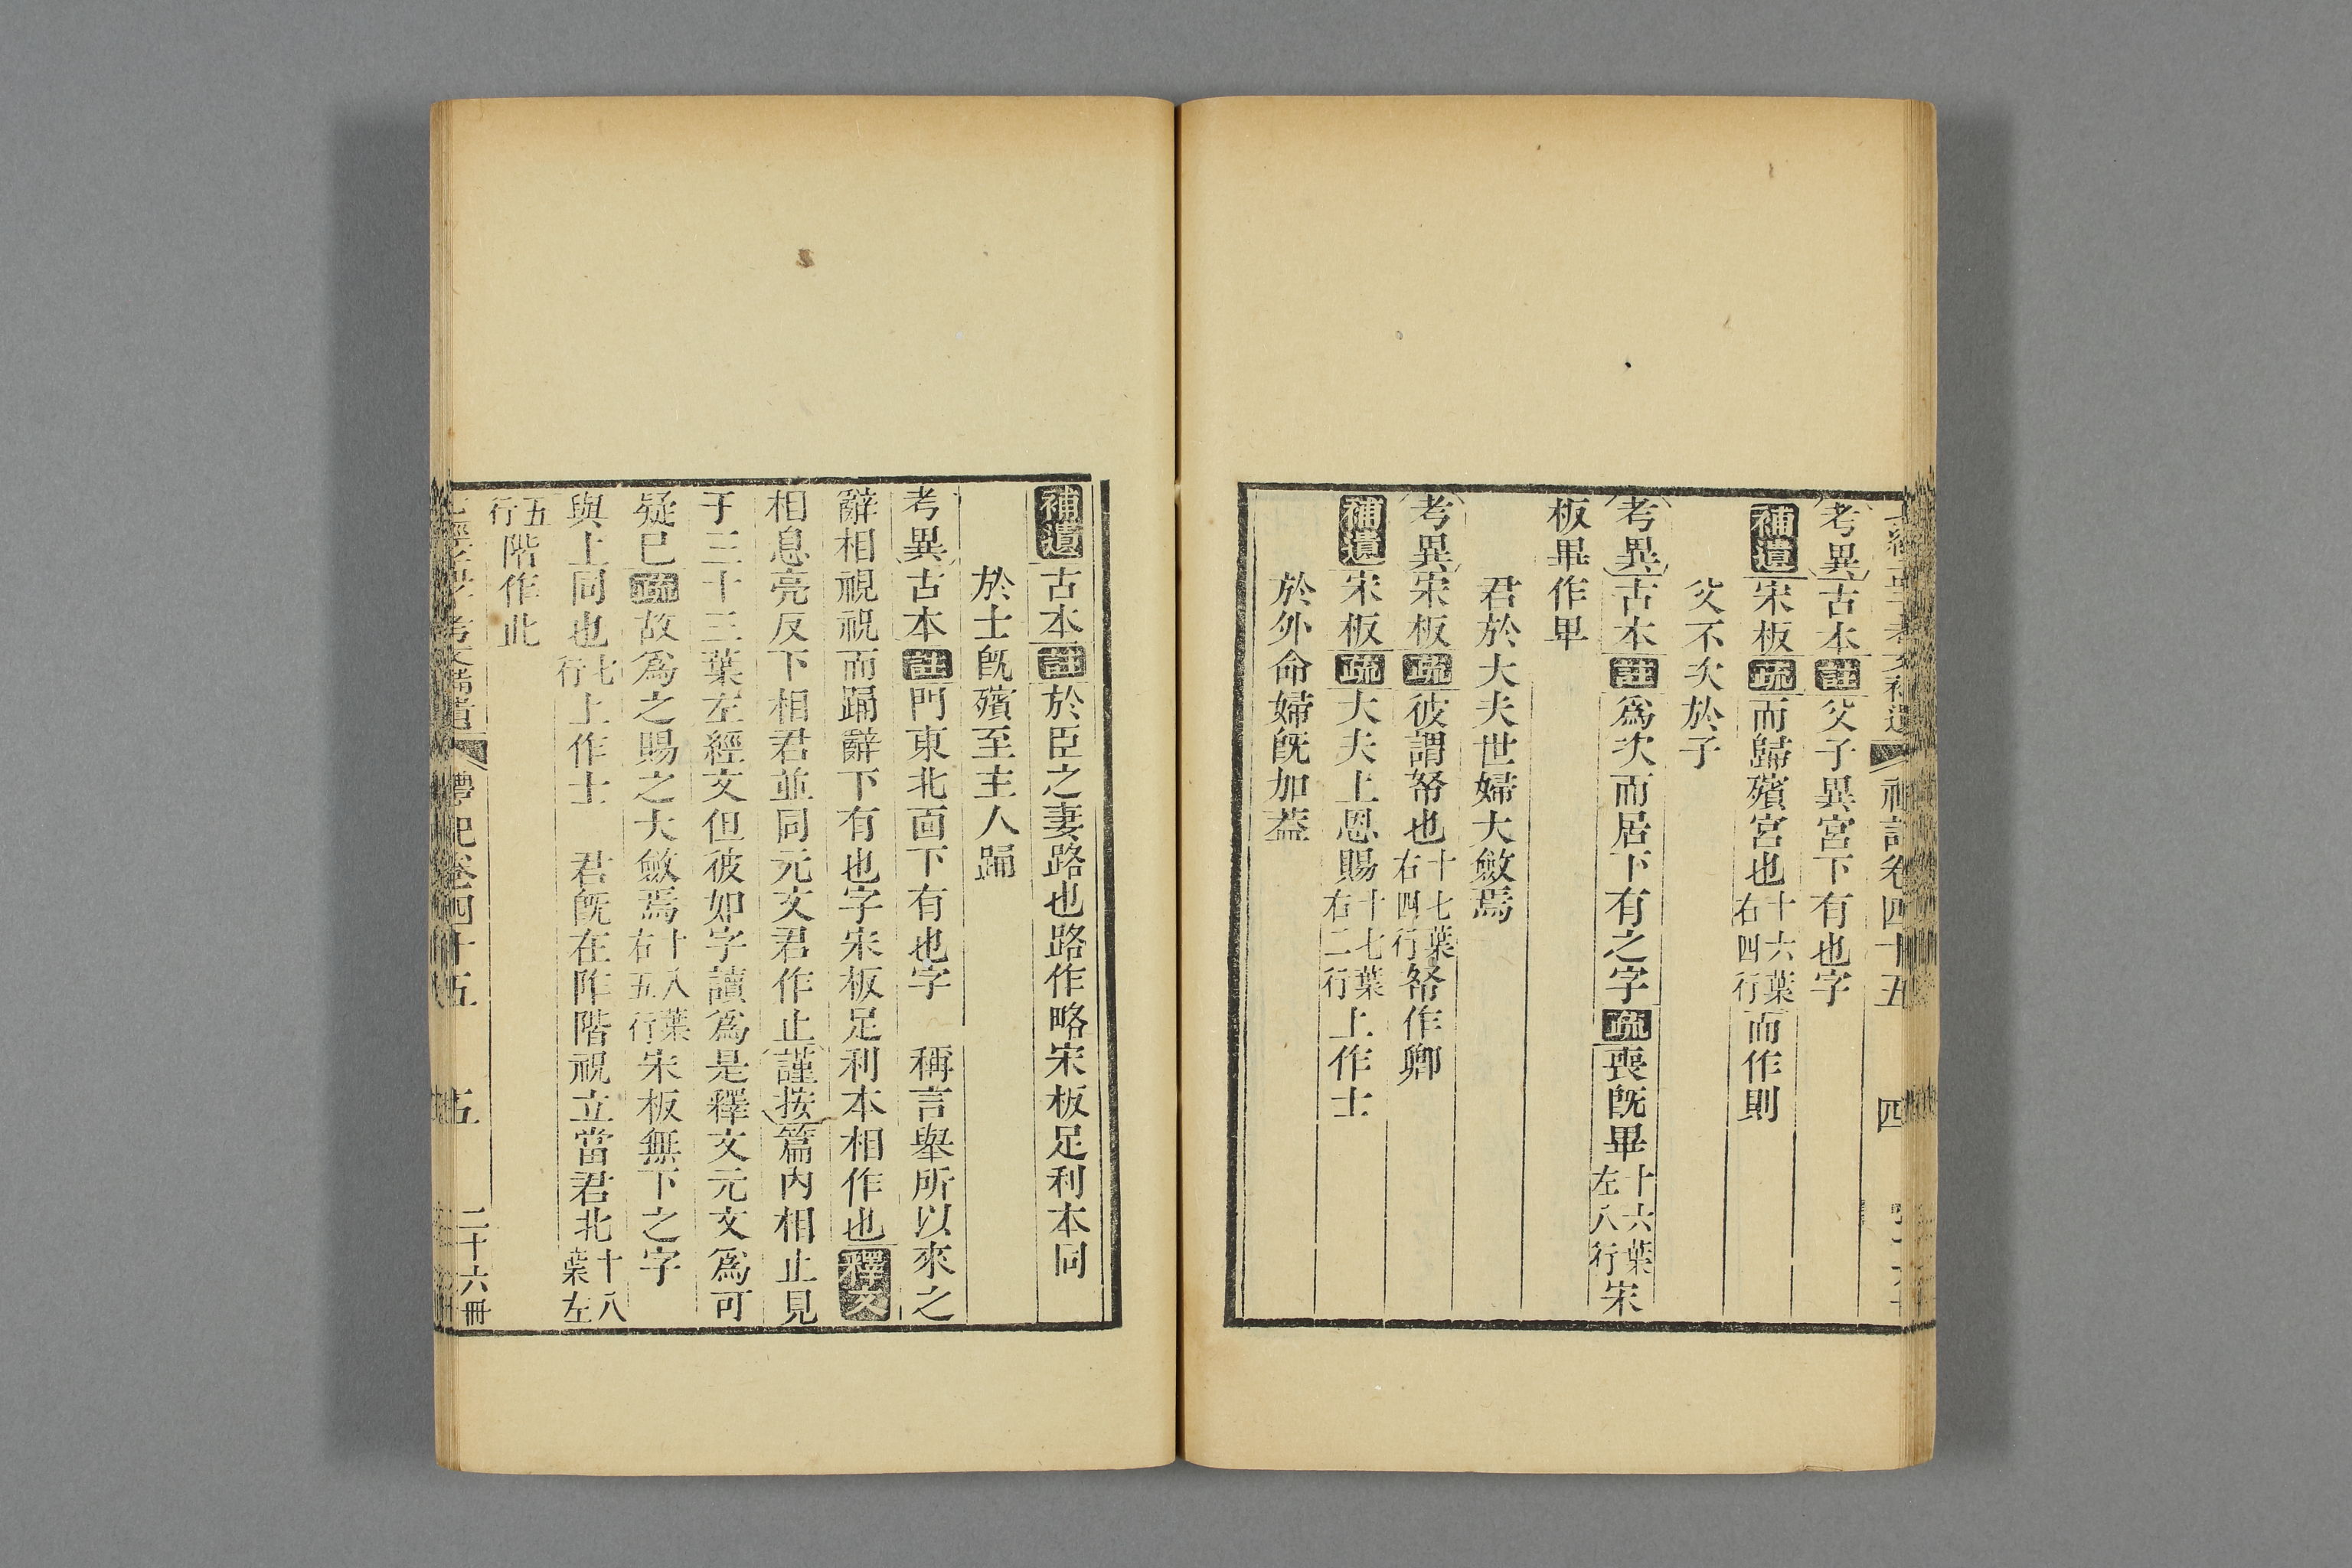 考異古本註父子異宮下有也字
補遺宋板疏而歸殯宮也十六葉右四行而作則
父不次於子
考異古本註爲次而居下有之字疏喪既畢十六葉左八行宋
板畢作卑
君於大夫世婦大斂焉
考異宋板疏彼謂帑也十七葉右四行帑作卿
補遺宋板疏大夫上恩賜十七葉右二行上作士
於外命婦既加葢
四
補遺古本註於臣之妻路也路作略宋板足利本同
於士既殯至主人踊
考異古本註門東北面下有也字 稱言舉所以來之
辭相視祝而踊辭下有也字宋板足利本相作也釋文
相息亮反下相君並同元文君作止謹按篇內相止見
于三十三葉左經文但彼如字讀爲是釋文元文爲可
疑已疏故爲之賜之大斂焉十八葉右五行宋板無下之字
與上同也七行上作士 君既在阼階視立當君北十八葉左
五行階作此
禮記卷四十五 五 二十六冊